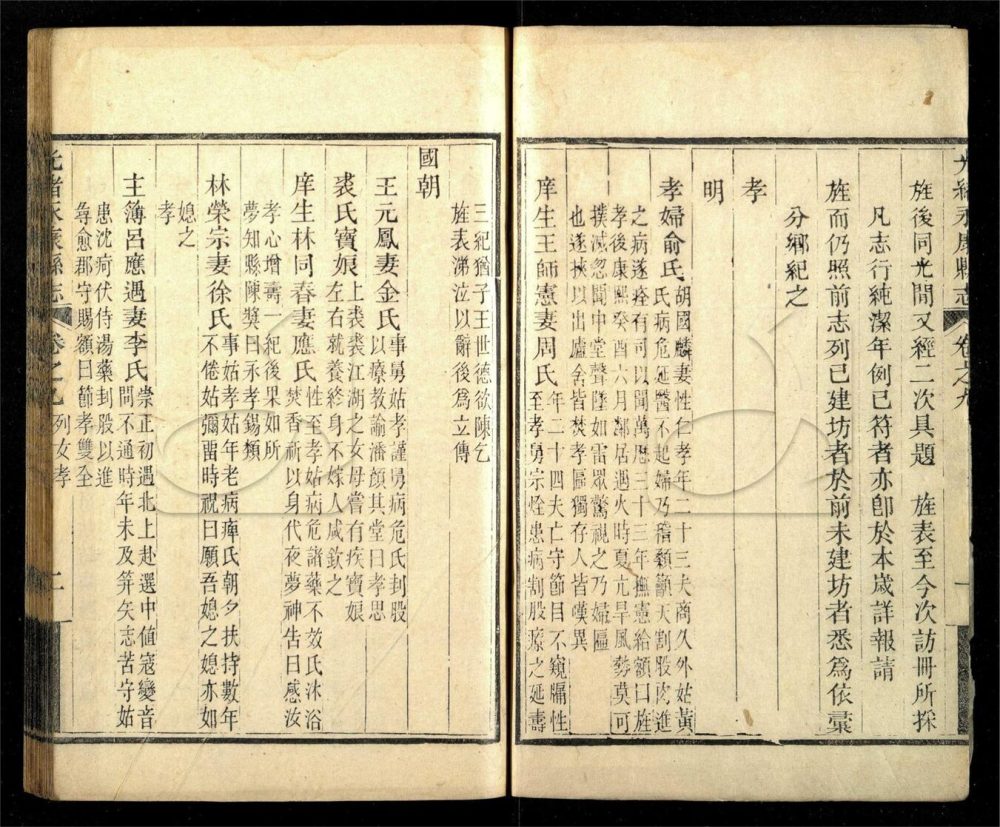 光緒永康縣志 卷之九 一
旌後同光間又經二次具題 旌表至今次訪冊所採
凡志行純潔年例已符者亦卽於本歲詳報請
旌而仍照前志列已建坊者於前未建坊者悉爲依稾
分鄉紀之
孝
明
孝婦俞氏胡國麟妻性仁孝年二十三夫商久外姑黃
氏病危延醫不起婦乃稽顙籲天割股肉進
之病遂痊有司以聞萬厯三十三年撫憲給額曰旌
孝後康熙癸酉六月鄰居遇火時夏亢旱風勢莫可
撲滅忽聞中堂聲墜如雷眾驚視之乃婦匾
也遂挾以出廬舍皆焚孝匾獨存人皆嘆異
庠生王師憲妻周氏年二十四夫亡守節目不窺牖性
至孝舅宗烇患病割股療之延壽
三紀猶子王世德欲陳乞
旌表涕泣以辭後爲立傳
國朝
王元鳳妻金氏事舅姑孝謹舅病危氏刲股
以療教諭潘顔其堂曰孝思
裘氏寶娘上裘裘江湖之女母嘗有疾寶娘
左右就養終身不嫁人咸欽之
庠生林同春妻應氏性至孝姑病危諸藥不效氏沐浴
焚香祈以身代夜夢神告曰感汝
孝心增壽一紀後果如所
夢知縣陳獎曰永孝錫類
林榮宗妻徐氏事姑孝姑年老病痺氏朝夕扶持數年
不倦姑彌留時祝曰願吾媳之媳亦如
媳之
孝
主簿呂應遇妻李氏崇正初遇北上赴選中値寇變音
問不通時年未及笄矢志苦守姑
患沈疴伏侍湯藥刲股以進
尋愈郡守賜額曰節孝雙全
光緒永康縣志 卷之九 列女孝 二